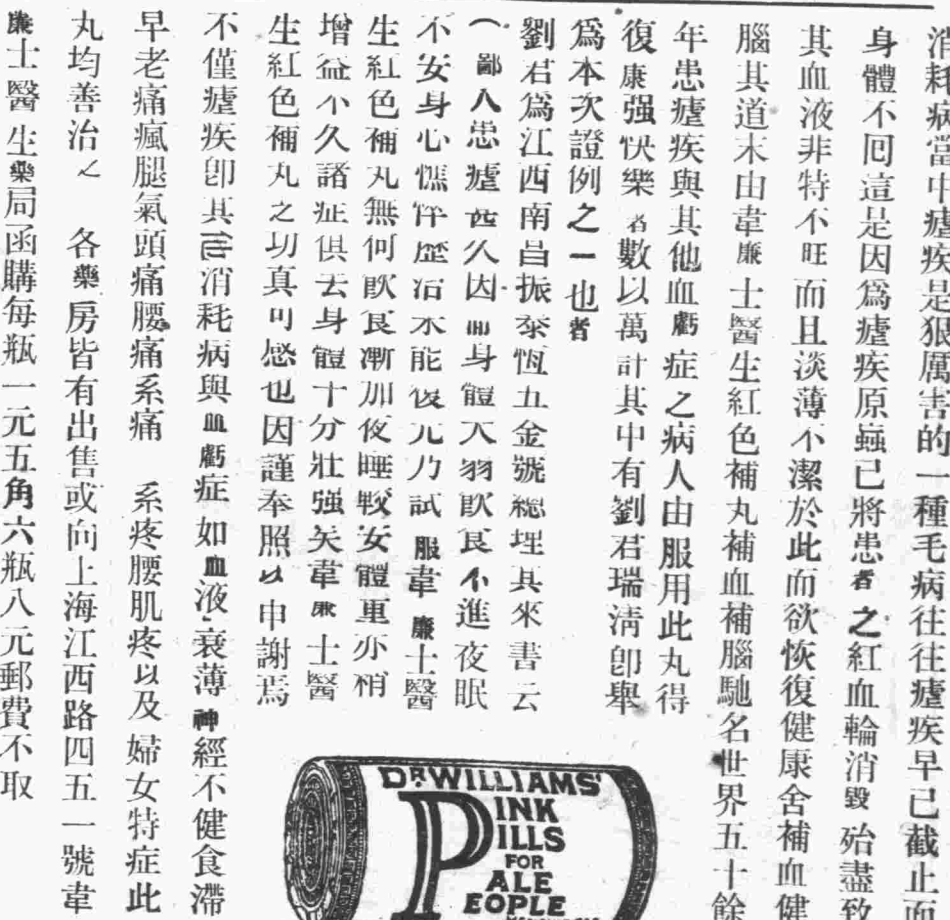 消耗病當中瘧疾是狠厲害的一種毛病往往瘧疾早已截止而
身體不囘這是因爲瘧疾原蟲已將患者之紅血輪消毀殆盡致
其血液非特不旺而且淡薄不潔於此而欲恢復健康舍補血健
腦其道末由韋廉士醫生紅色補丸補血補腦馳名世界五十餘
年患瘧疾與其他血虧症之病人由服用此丸得
復康强快樂者數以萬計其中有劉君瑞淸卽舉
爲本次證例之一也者
劉君爲江西南昌振泰恆五金號總理其來書云
（鄙人患瘧甚久因而身體大弱飮食不進夜眠
不安身心憔悴歷治未能復元乃試服韋廉士醫
生紅色補丸無何飮食漸加夜睡較安體重亦稍
增益不久諸症俱去身體十分壯强矣韋廉士醫
生紅色補丸之功真可感也因謹奉照以申謝焉
不僅瘧疾卽其他消耗病與血虧症如血液衰薄神經不健食滯
早老痛瘋腿氣頭痛腰痛系痛 系疼腰肌疼以及婦女特症此
丸均善治之 各藥房皆有出售或向上海江西路四五一號韋
廉士醫生藥局函購每瓶一元五角六瓶八元郵費不取
DR WILLIAMS'
PINK
PILLS
FOR
PALE
PEOPLE